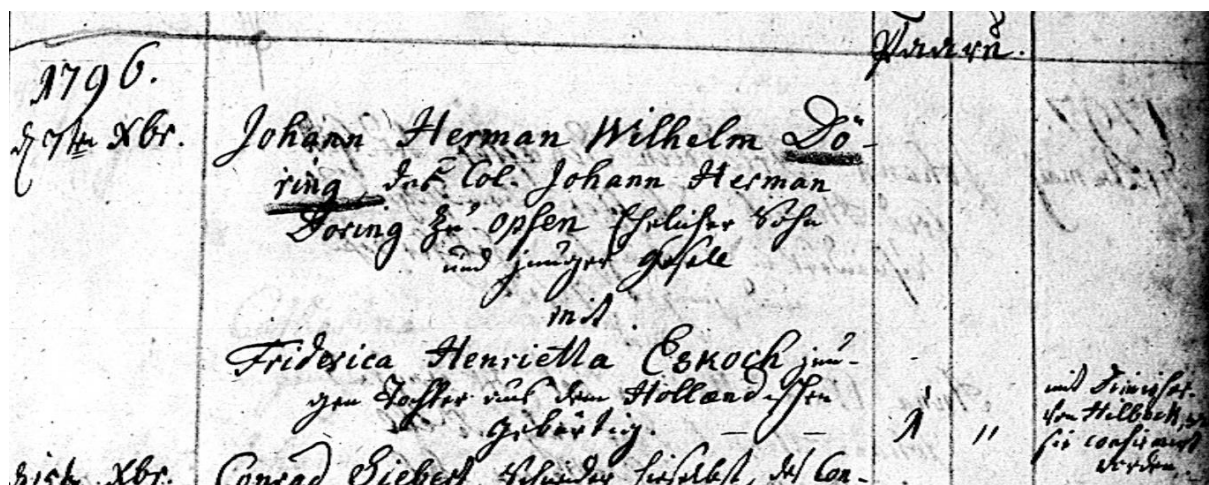 Paaru.
1796.
d 7ten Xbr.
Johann Herman Wilhelm Dö-
ring des Col. Johann Herman
Doring zu opsen Ehelicher Sohn
und junger Gesell
mit
Friderica Henrietta Eskoch jun-
gen Tochter aus dem Hollandischen
gebürtig. — —
1 "
mit
von Hilbeck,
sie confirmirt
worden.
Xbr. Conrad Siebert, Schneider hieselbst, des Con-